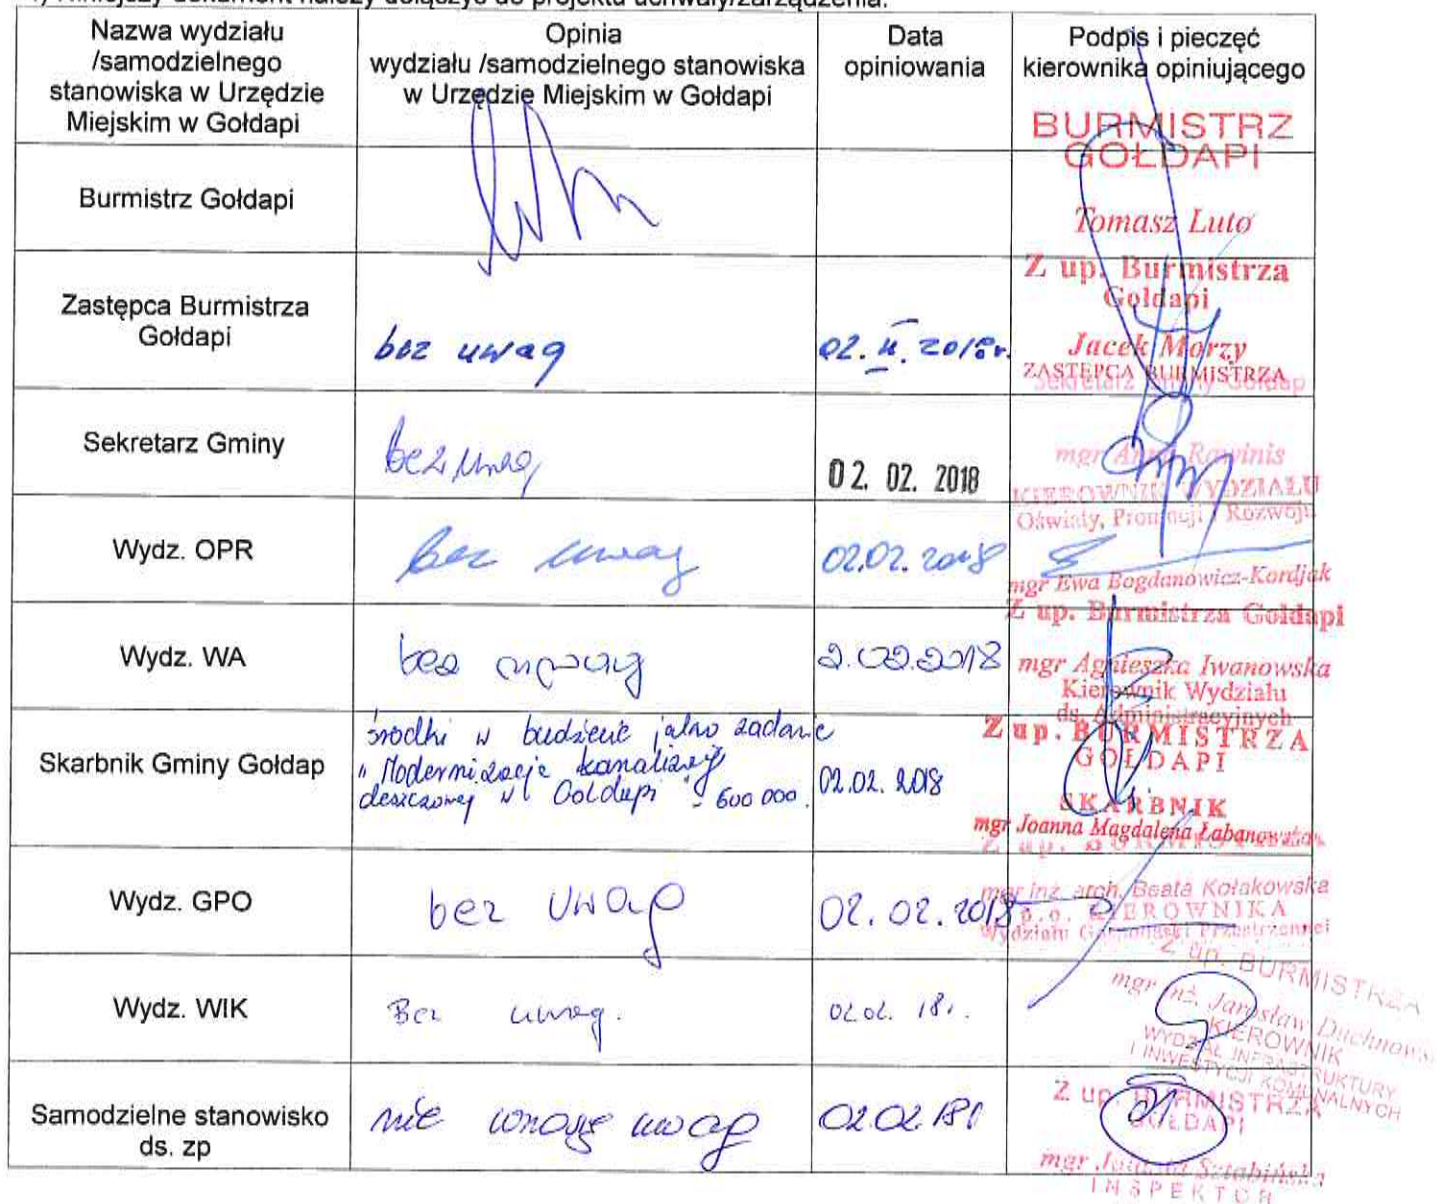 Nazwa wydziału
/samodzielnego
stanowiska w Urzędzie
Miejskim w Gołdapi
Opinia
wydziału /samodzielnego stanowiska
w Urzędzie Miejskim w Gołdapi
Data
opiniowania
Podpis i pieczęć
kierownika opiniującego
Burmistrz Gołdapi
BURMISTRZ
GOŁDAPI
Tomasz Luto
Zastępca Burmistrza
Gołdapi
bez uwag
02. II. 2018r.
Z up. Burmistrza
Gołdapi
Jacek Morzy
ZASTĘPCA BURMISTRZA
Sekretarz Gminy
bez uwag
02. 02. 2018
Sekretarz Gminy Gołdap
mgr Anna Rawinis
Wydz. OPR
bez uwag
02.02.2018
KIEROWNIK WYDZIAŁU
Oświaty, Promocji i Rozwoju
mgr Ewa Bogdanowicz-Kordjak
Wydz. WA
bez uwag
2.02.2018
Z up. Burmistrza Gołdapi
mgr Agnieszka Iwanowska
Kierownik Wydziału
ds. Administracyjnych
Skarbnik Gminy Gołdap
środki w budżecie jako zadanie
"Modernizacja kanalizacji
deszczowej w Gołdapi" - 600 000.
02.02.2018
Z up. BURMISTRZA
GOŁDAPI
SKARBNIK
mgr Joanna Magdalena Łabanowska
Wydz. GPO
bez uwag
02.02.2018
Z up. BURMISTRZA
mgr inż. arch. Beata Kołakowska
p.o. KIEROWNIKA
Wydziału Gospodarki Przestrzennej
Wydz. WIK
Bez uwag.
02.02. 18r.
Z up. BURMISTRZA
mgr inż. Jarosław
KIEROWNIK
WYDZIAŁ INFRASTRUKTURY
I INWESTYCJI KOMUNALNYCH
Samodzielne stanowisko
ds. zp
nie wnoszę uwag
02.02.18r
Z up. BURMISTRZA
GOŁDAPI
mgr Sztabińska
INSPEKTOR